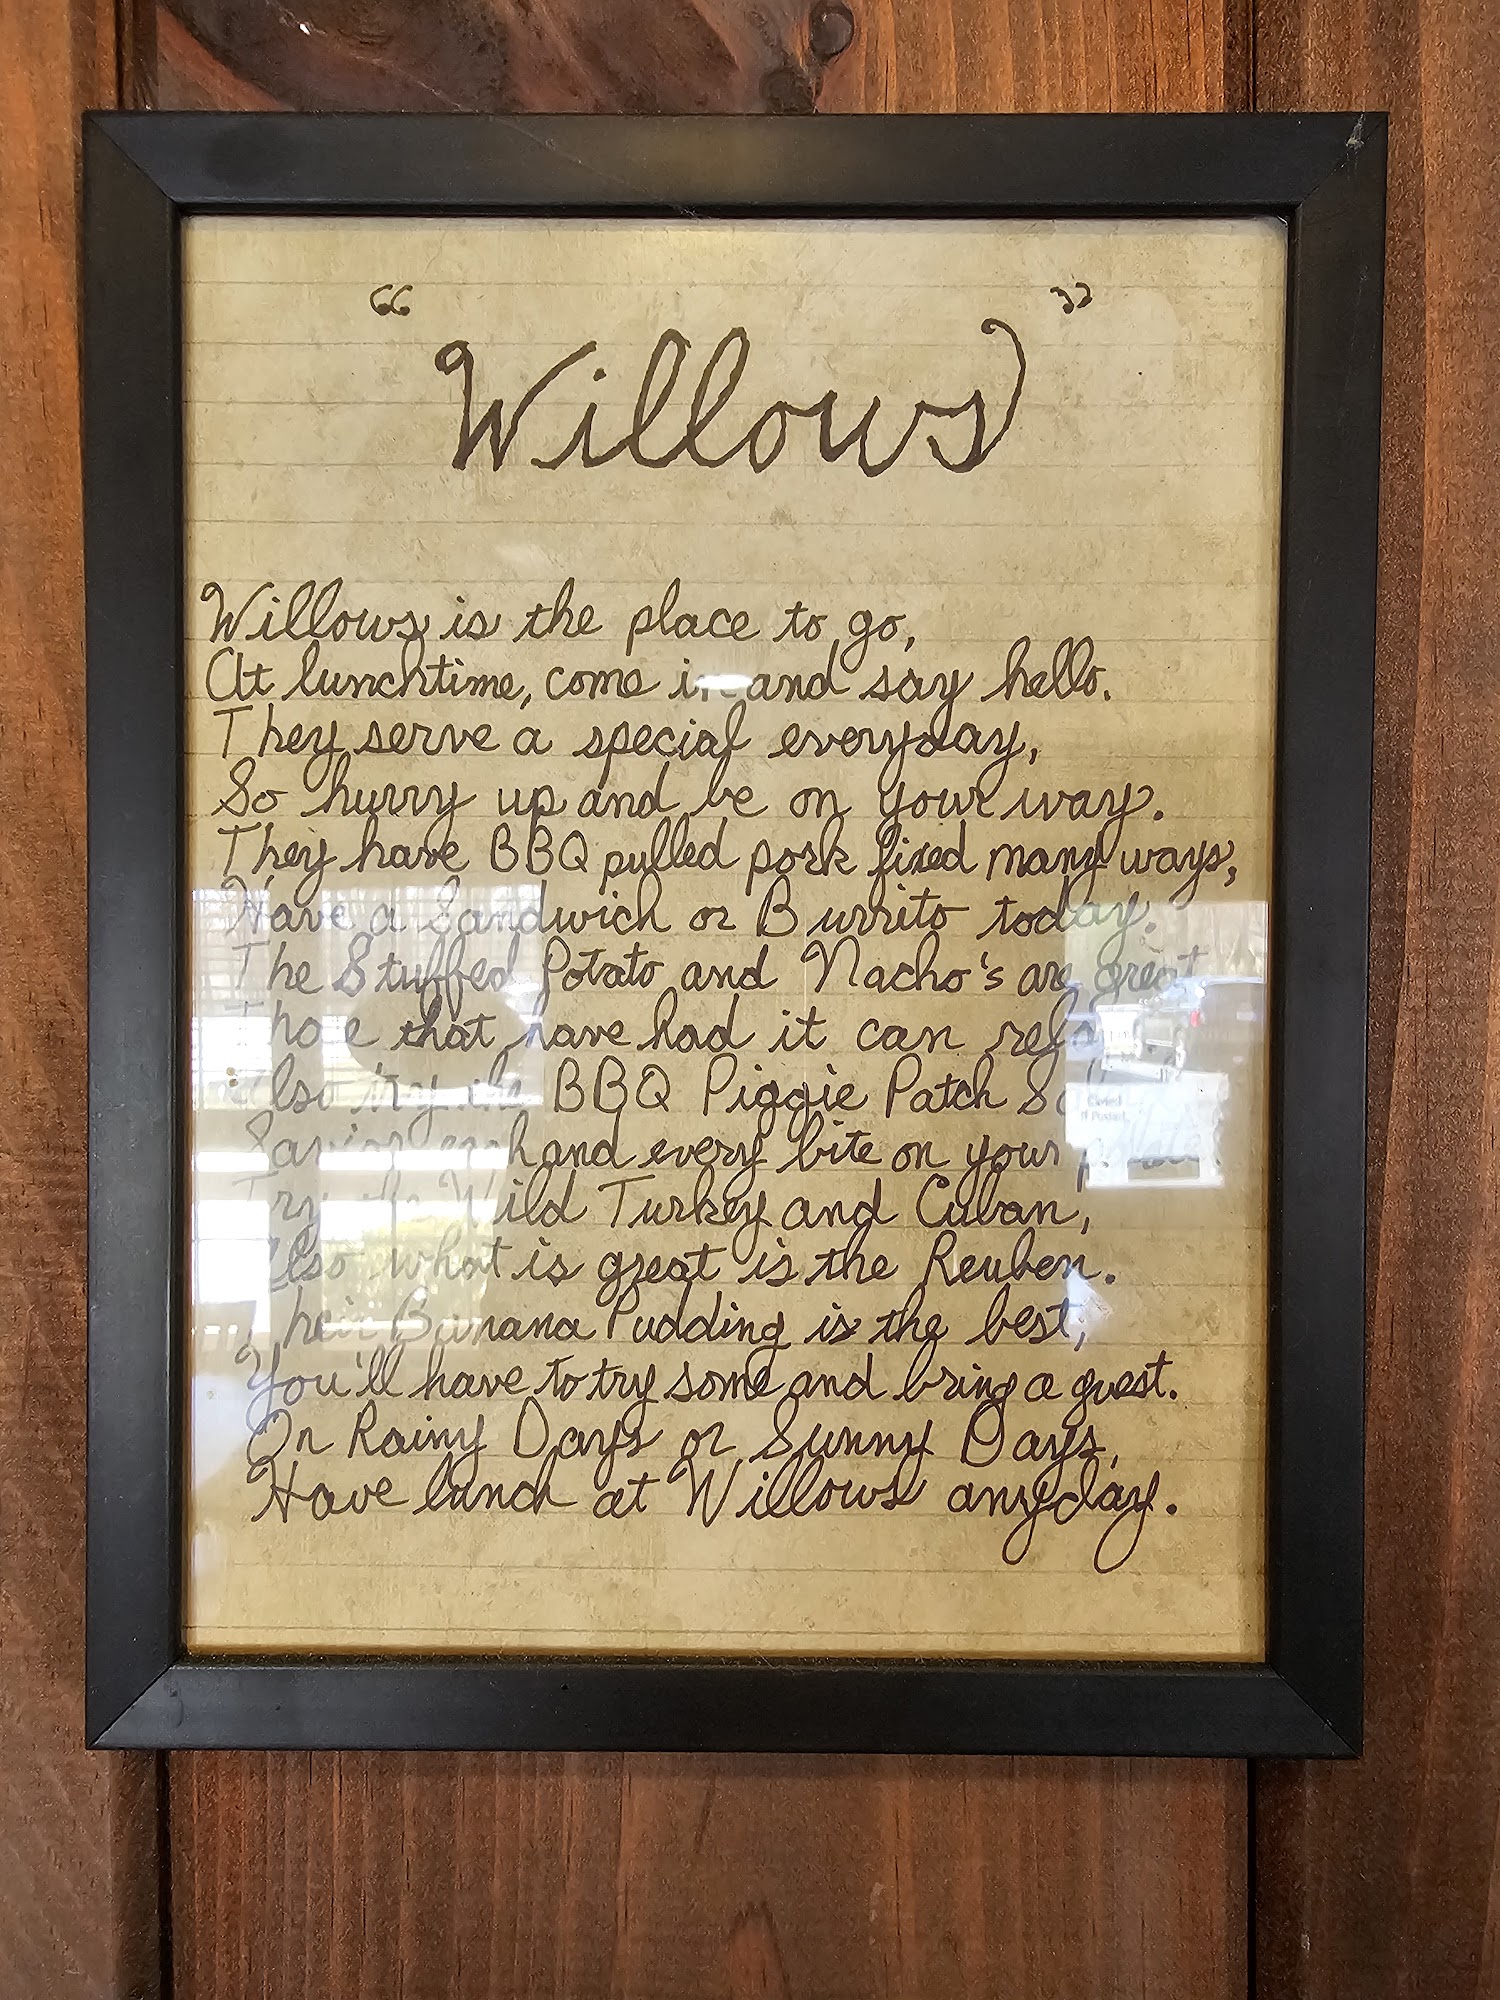 “ ”
Willows
Willows is the place to go,
At lunchtime, come in and say hello.
They serve a special everyday,
So hurry up and be on your way.
They have BBQ pulled pork fixed many ways,
Have a Sandwich or Burrito today.
The Stuffed Potato and Nacho's are great
that have had it can
Also try the BBQ Piggie Patch
each and every bite on your
Try the Wild Turkey and Cuban,
Also what is great is the Reuben.
Their Banana Pudding is the best,
You'll have to try some and bring a guest.
On Rainy Days or Sunny Days,
Have lunch at Willows anyday.